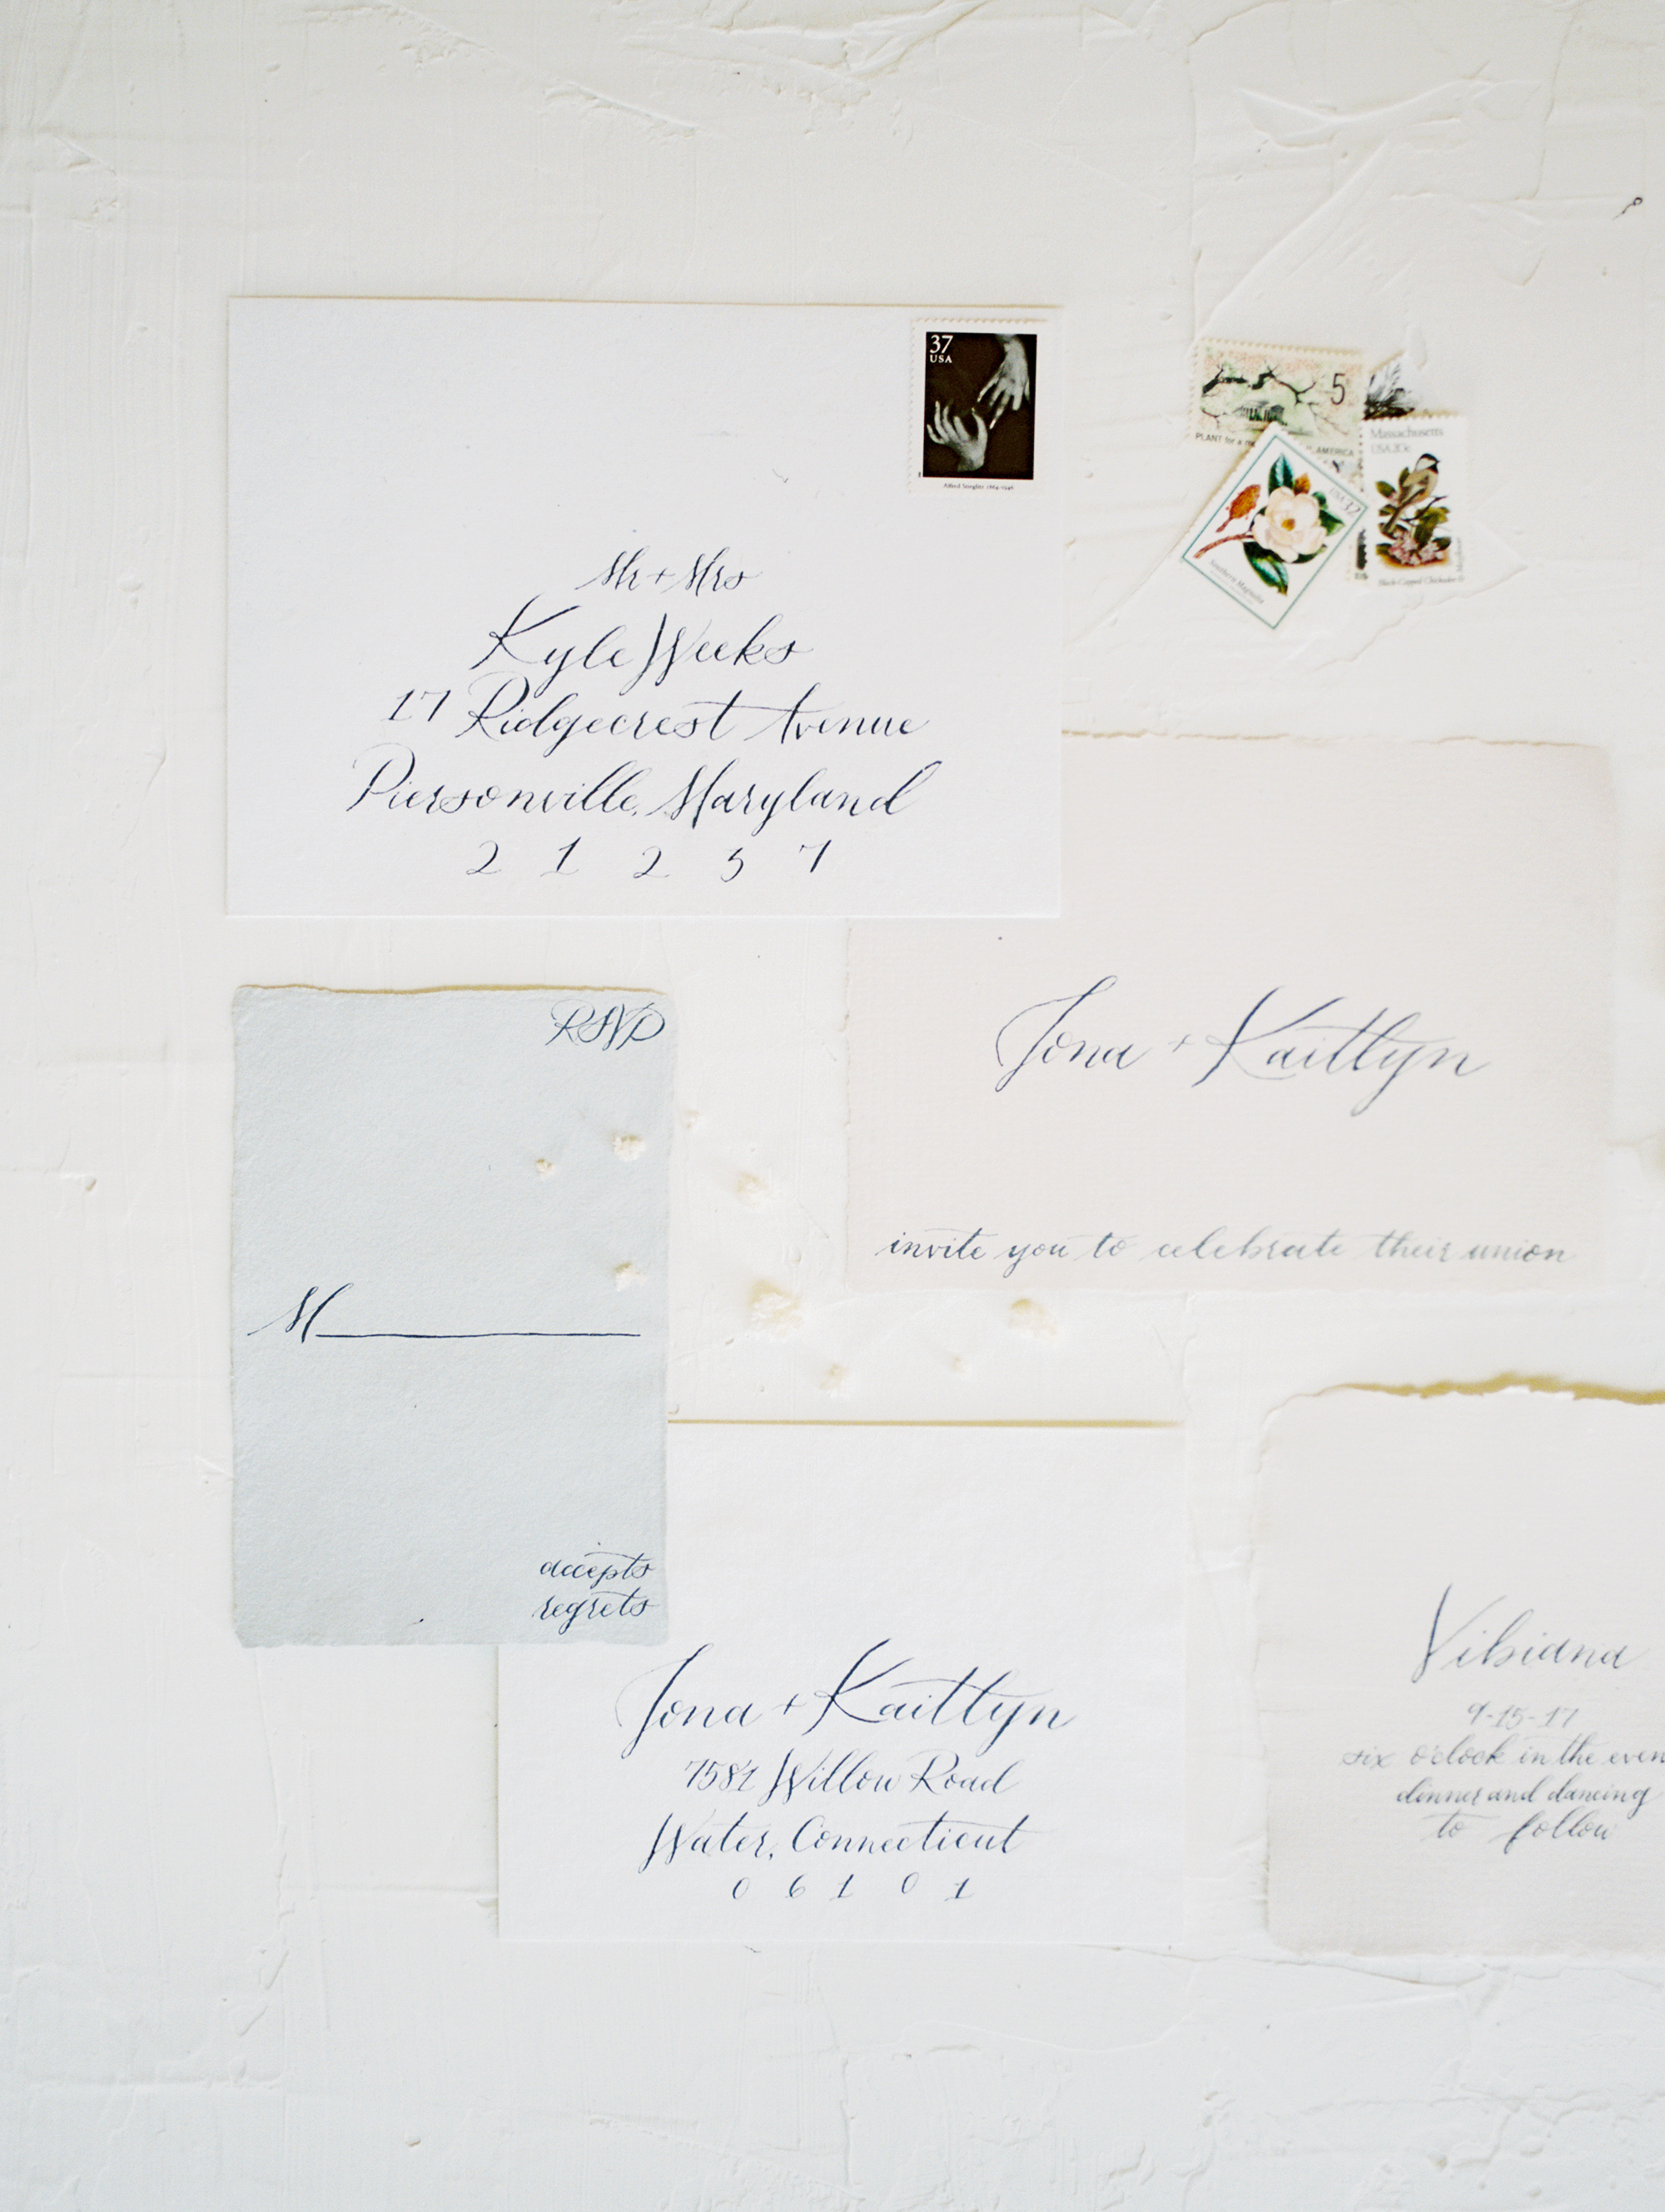 37
USA
Alfred Stieglitz 1864-1946
Mr + Mrs
Kyle Weeks
17 Ridgecrest Avenue
Piersonville, Maryland
2 1 2 5 7
5
PLANT for a
AMERICA
Massachusetts
USA 20c
USA 32
Southern Magnolia
Black-Capped Chickadee &
Mayflower
Jona + Kaitlyn
invite you to celebrate their union
RSVP
M
accepts
regrets
Jona + Kaitlyn
7581 Willow Road
Water, Connecticut
0 6 1 0 1
Vibiana
9-15-17
six o'clock in the even
dinner and dancing
to follow